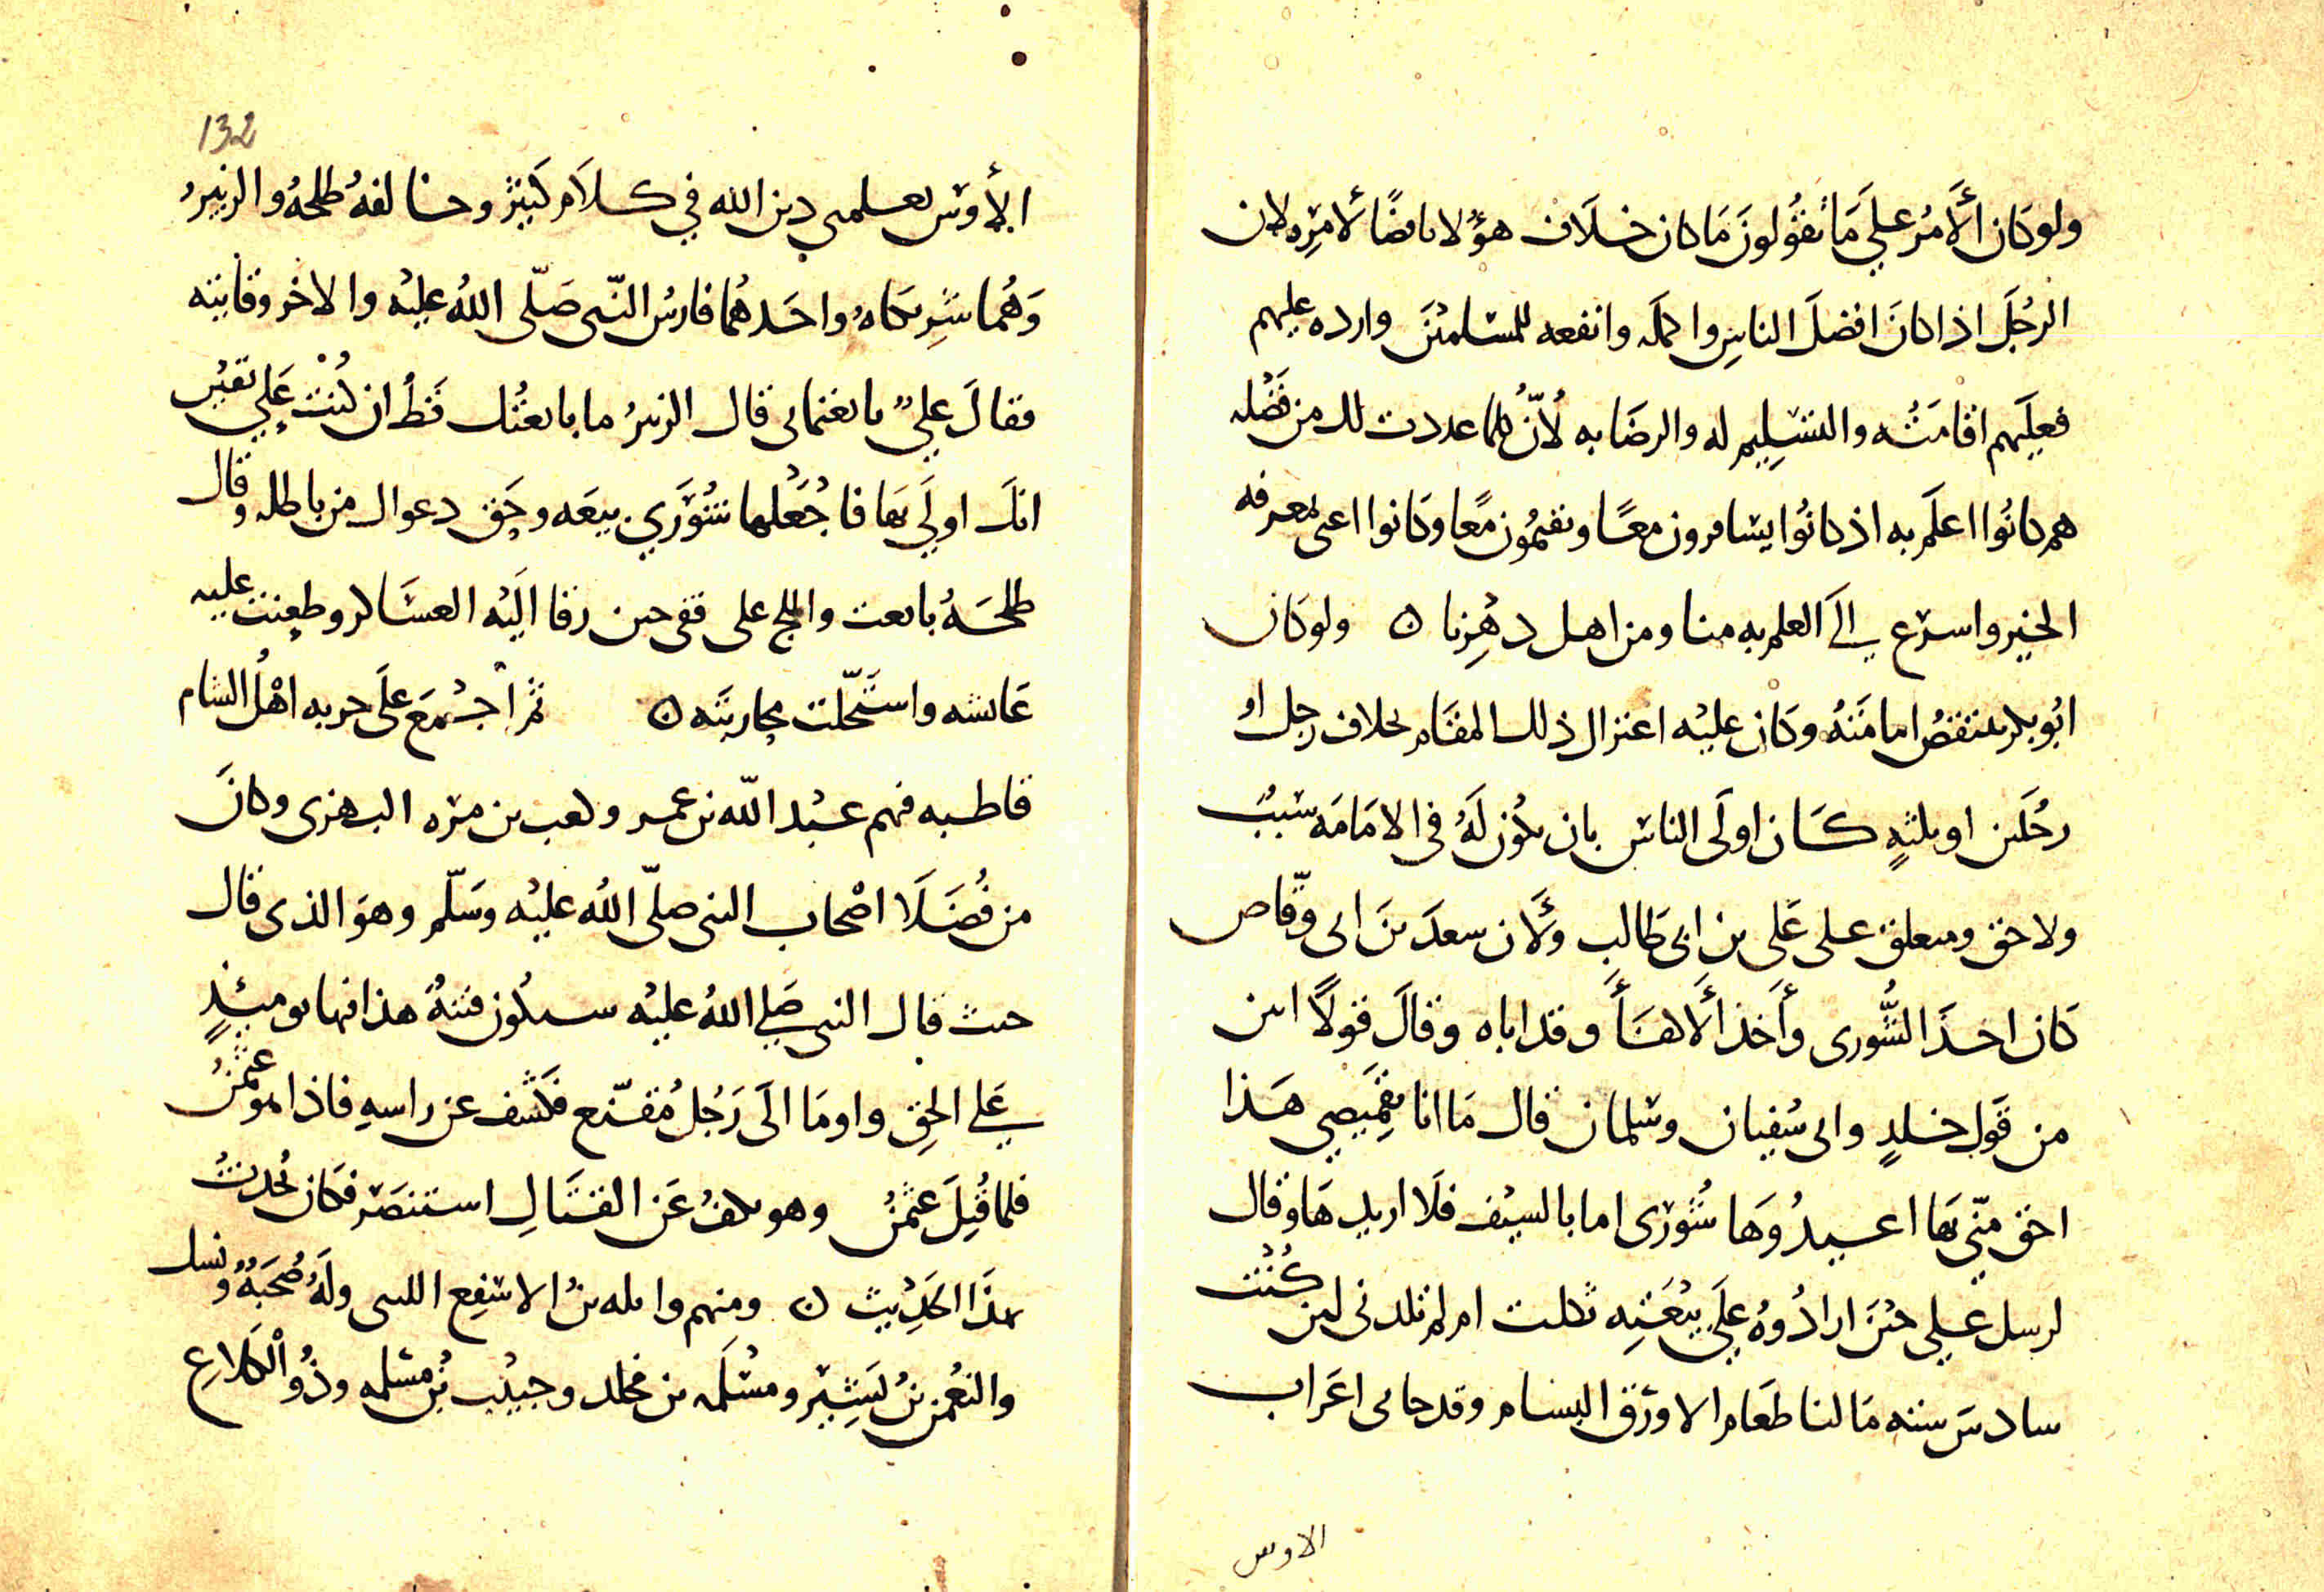 ولو كان الأمر علي ما تقولون ما كان خلاف هؤلا ناقضًا لأمره لان
الرجل اذا كان افضل الناس واكمله وانفعه للمسلمين وارده عليهم
فعليهم اقامته والتسليم له والرضا به لأن كلما عددت لك من فضله
هم كانوا اعلم به اذ كانوا يسافرون معًا ويقيمون معًا وكانوا اعنى بمعرفه
الخير واسرع الى العلم به منا ومن اهل دهرنا ه ولو كان
ابو بكر تنتقض امامته وكان عليه اعتزال ذلك المقام لخلاف رجل او
رجلين او ثلثةٍ كان اولى الناس بان يكون له فى الامامه سبب
ولا حق ومتعلق على على بن ابى طالب ولأن سعد بن ابى وقاص
كان احد الشورى وأخذ ألاهنأ وقد اباه وقال قولًا ابين
من قول خلدٍ وابى سفيان وسلمان قال ما انا بقميصي هذا
احق منّي بها اعيدوها شورى اما بالسيف فلا اريدها وقال
لرسل علي حين ارادوه على بيعته ثكلت ام لم تلدنى لين كنت
سادس سته ما لنا طعام الا ورق البشام وقد جاءى اعراب
الاوس
132
الأوس تعلمنى دين الله في كلام كثير وخالفه طلحة والزبير
وهما شريكاه واحدهما فارس النبى صلّى الله عليه والاخر وقايته
فقال علي بايعتمانى قال الزبير ما بايعتك قط ان كنت علي تقيس
انك اولي بها فاجعلها شورى بيعه وحق دعواك من باطله وقال
طلحة بايعت واللج على قفى حين زفا اليه العساكر وطعنت عليه
عايشه واستحلت محاربته ه ثم أجمع على حربه اهل الشام
قاطبه فهم عبد الله بن عمر وكعب بن مره البهزى وكان
من فضلا اصحاب النبى صلّى الله عليه وسلّم وهو الذى قال
حيث قال النبى صلي الله عليه ستكون فتنة هذا فيها يوميئذٍ
علي الحق واوما الى رجل مقنّع فكشف عن راسه فاذا هو عثمن
فلما قتل عثمن وهو يكف عن القتال استنصر فكان يحدث
بهذا الحديث ه ومنهم واثله بن الاسقع الليثى وله صحبة ونسك
والنعمن بن بشير ومسلمه بن مخلد وحبيب بن مسلمه وذو الكلاع